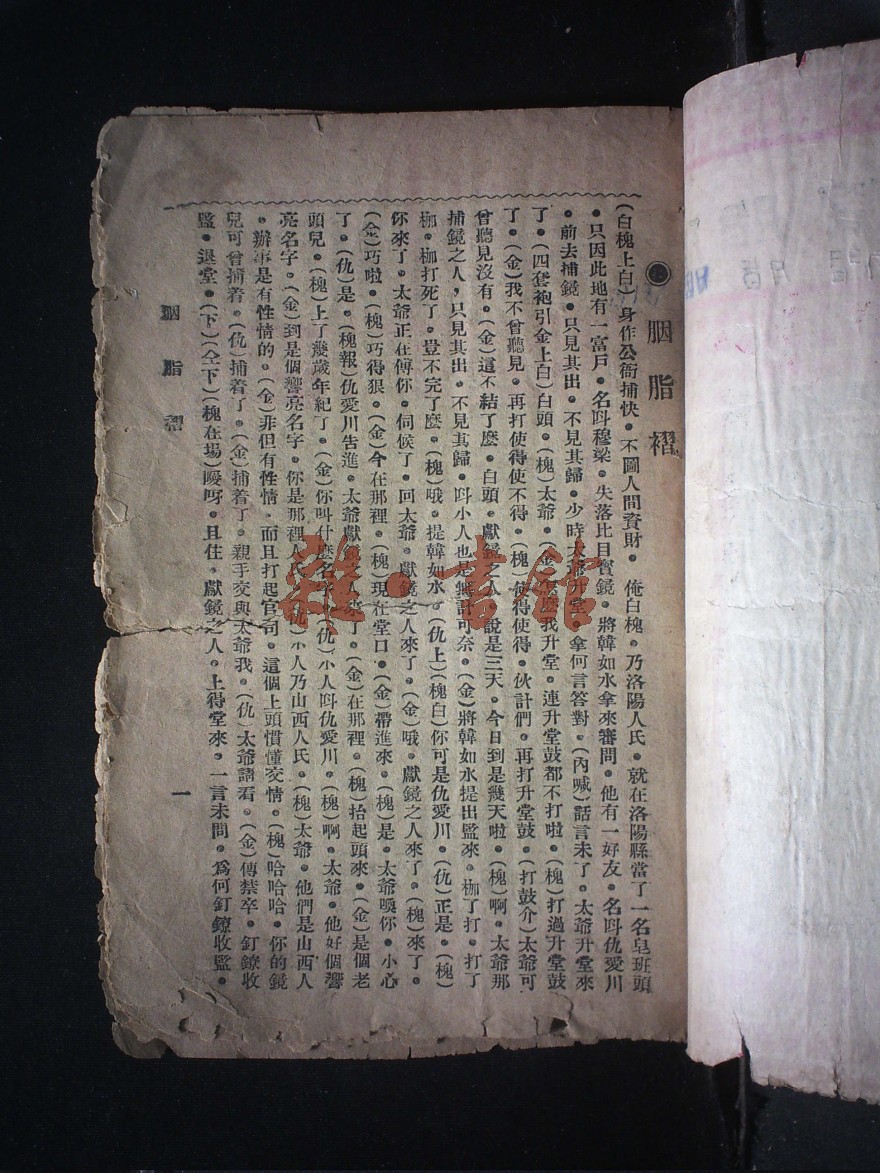 胭脂褶
(白槐上白)身作公衙捕快。不圖人間資財。俺白槐。乃洛陽人氏。就在洛陽縣當了一名皂班頭
。只因此地有一富戶。名呌穆梁。失落比目寶鏡。將韓如水拿來審問。他有一好友。名呌仇愛川
。前去捕鏡。只見其出。不見其歸。少時太爺升堂。拿何言答對。(內喊)話言未了。太爺升堂來
了。(四套袍引金上白)白頭。(槐)太爺。(金)怎麽我升堂。連升堂鼓都不打啦。(槐)打過升堂鼓
了。(金)我不曾聽見。再打使得使不得。(槐)使得使得。伙計們。再打升堂鼓。(打鼓介)太爺可
曾聽見沒有。(金)這不結了麽。白頭。獻鏡之人。說是三天。今日到是幾天啦。(槐)啊。太爺那
捕鏡之人,只見其出。不見其歸。呌小人也是無計可奈。(金)將韓如水提出監來。枷了打。打了
枷。枷打死了。豈不完了麽。(槐)哦。提韓如水。(仇上)(槐白)你可是仇愛川。(仇)正是。(槐)
你來了。太爺正在傳你。伺候了。回太爺。獻鏡之人來了。(金)哦。獻鏡之人來了。(槐)來了。
(金)巧啦。(槐)巧得狠。(金)今在那裡。(槐)現在堂口。(金)帶進來。(槐)是。太爺喚你。小心
了。(仇)是。(槐報)仇愛川告進。太爺獻鏡之人來了。(金)在那裡。(槐)抬起頭來。(金)是個老
頭兒。(槐)上了幾歲年紀了。(金)你呌什麽名字。(仇)小人呌仇愛川。(槐)啊。太爺。他好個響
亮名字。(金)到是個響亮名字。你是那裡人氏。(仇)小人乃山西人氏。(槐)太爺。他們是山西人
。辦事是有性情的。(金)非但有性情。而且打起官司。這個上頭慣懂交情。(槐)哈哈哈。你的鏡
兒可曾捕着。(仇)捕着了。(金)捕着了。親手交與太爺我。(仇)太爺請看。(金)傳禁卒。釘鐐收
監。退堂。(下)(仝下)(槐在場)嗳呀。且住。獻鏡之人。上得堂來。一言未問。爲何釘鐐收監。
胭脂褶
一
雜·書館